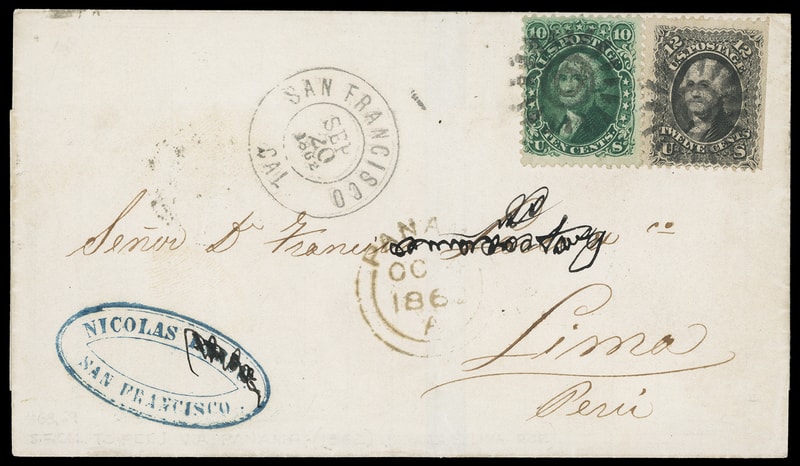 10 10
U.S. POSTAGE
TEN CENTS
U S
12 12
U.S. POSTAGE
TWELVE CENTS
U S
SAN FRANCISCO
SEP
20
1862
CAL
Señor Dn Francisco
co
PANA
OC
186
A
Lima
Perú
NICOLAS
SAN FRANCISCO